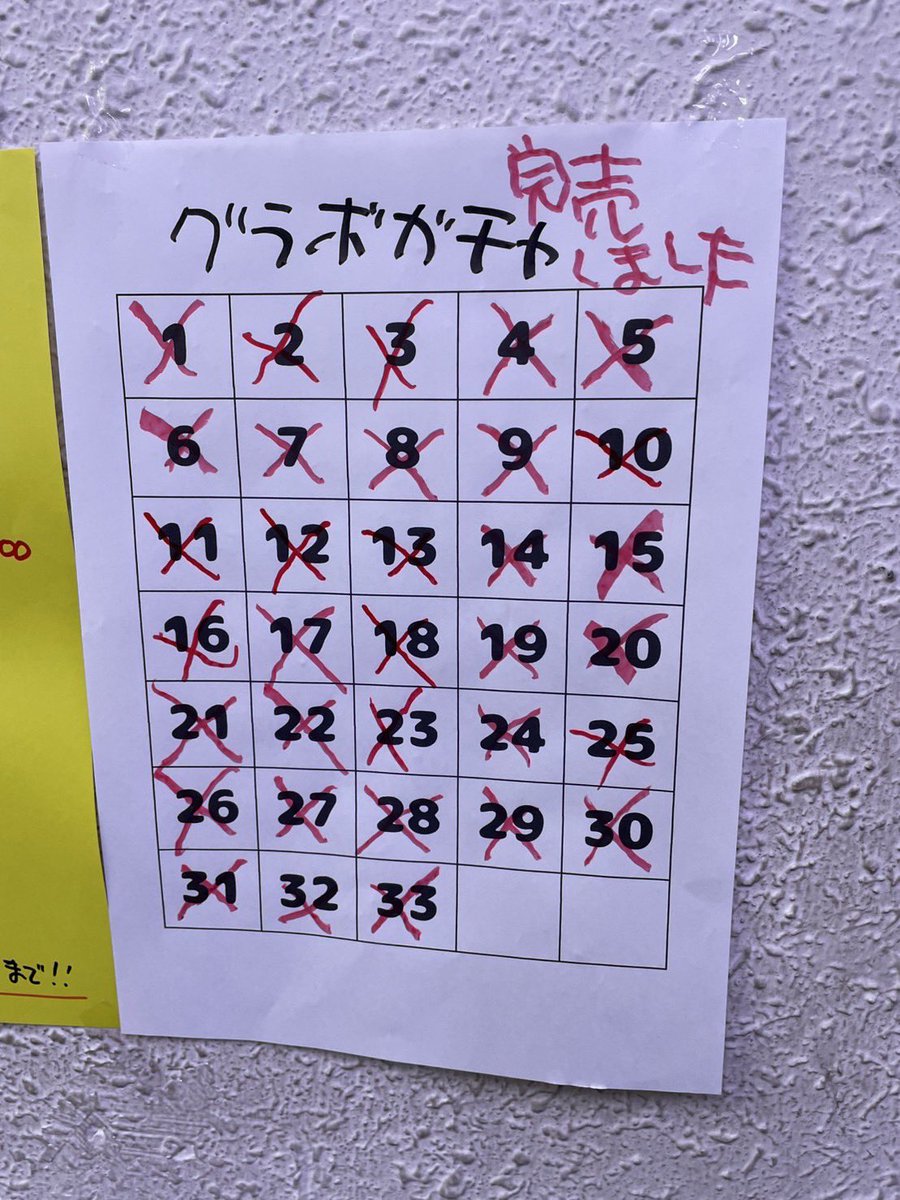 グラボガチャ
完売
しました
1 2 3 4 5
6 7 8 9 10
11 12 13 14 15
16 17 18 19 20
21 22 23 24 25
26 27 28 29 30
31 32 33
00
まで!!